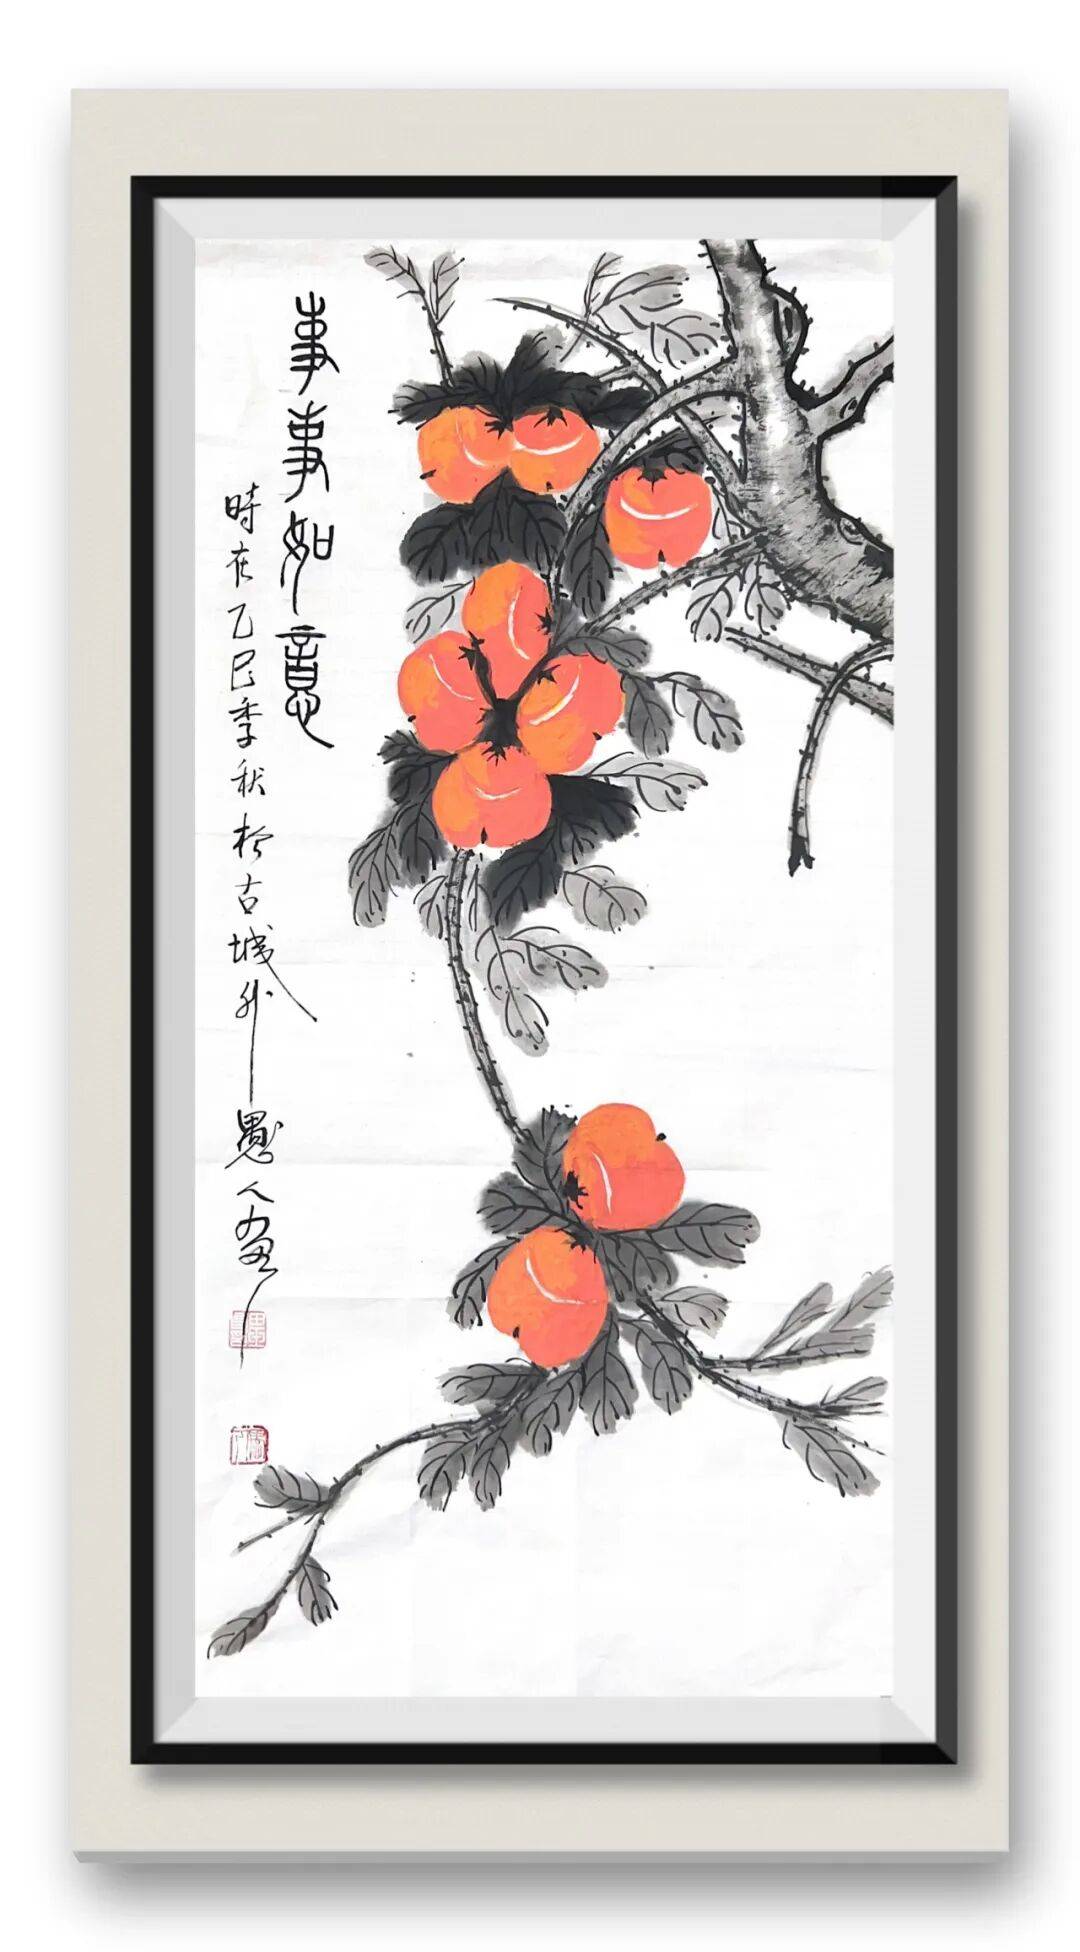 事事如意
時在乙巳季秋於古城外
愚人画